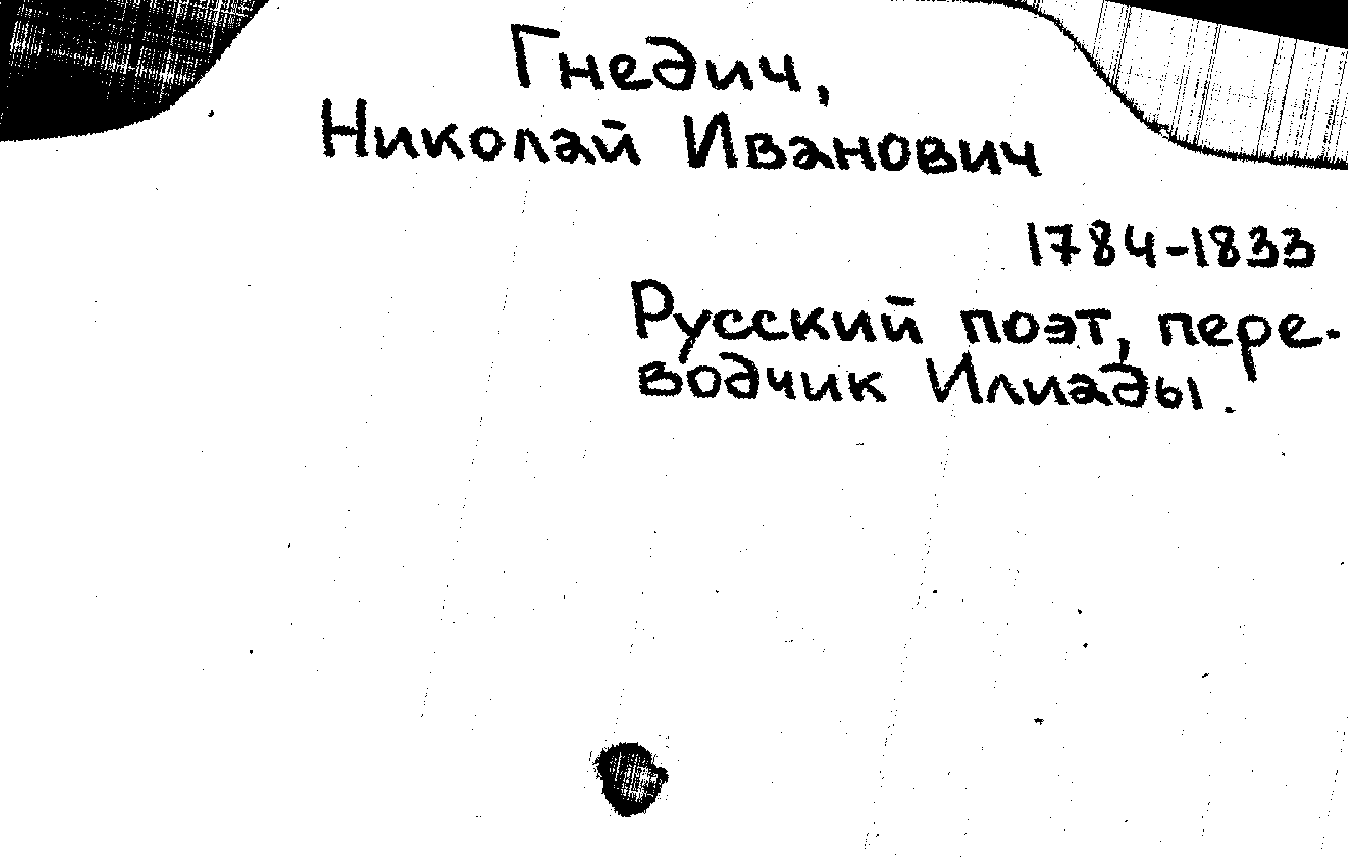 Гнедич,
Николай Иванович
1784-1833
Русский поэт, пере-
водчик Илиады.